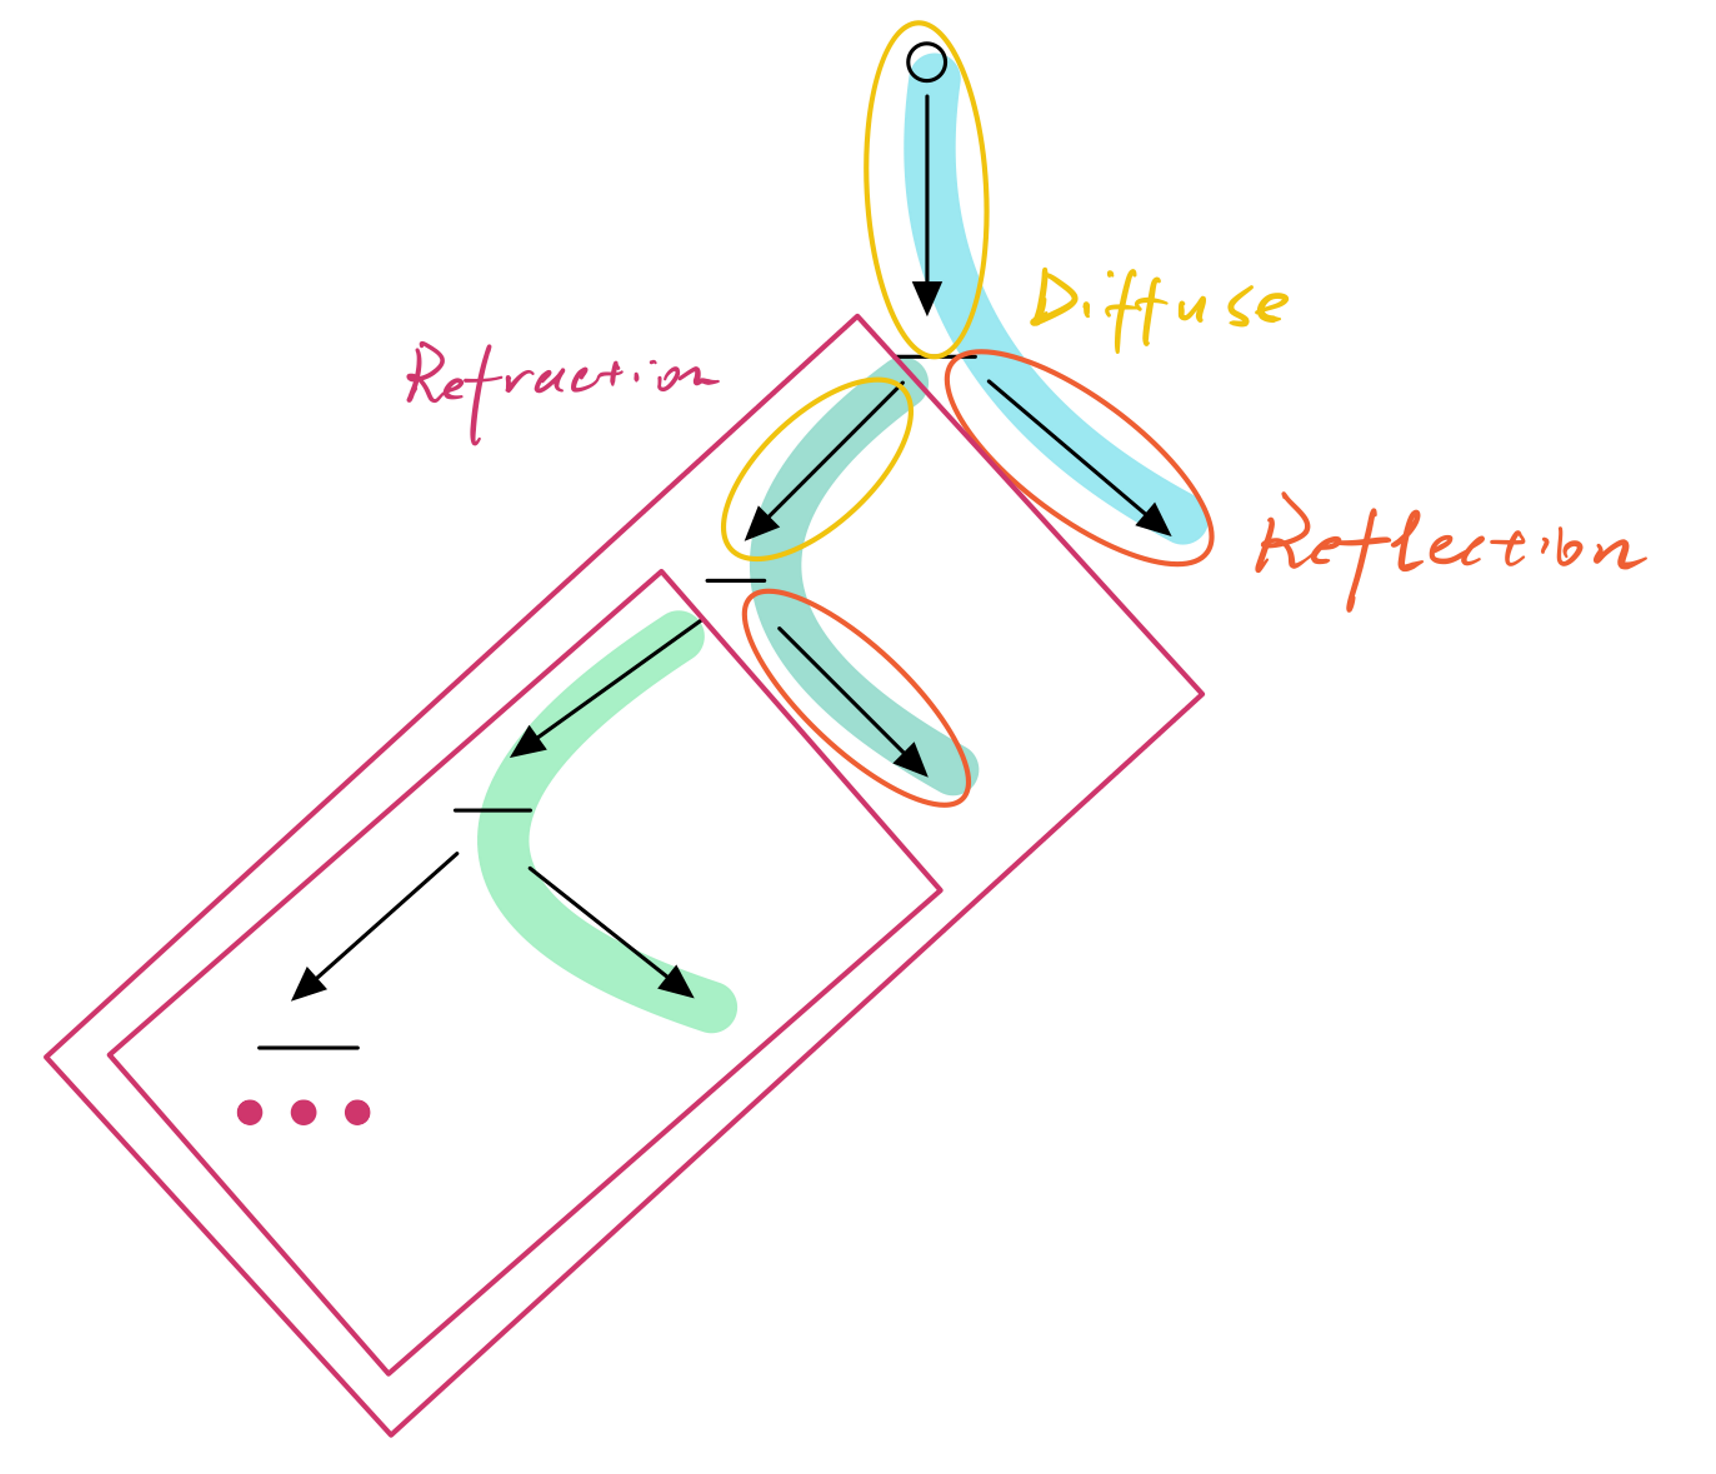 Diffuse
Refraction
Reflection